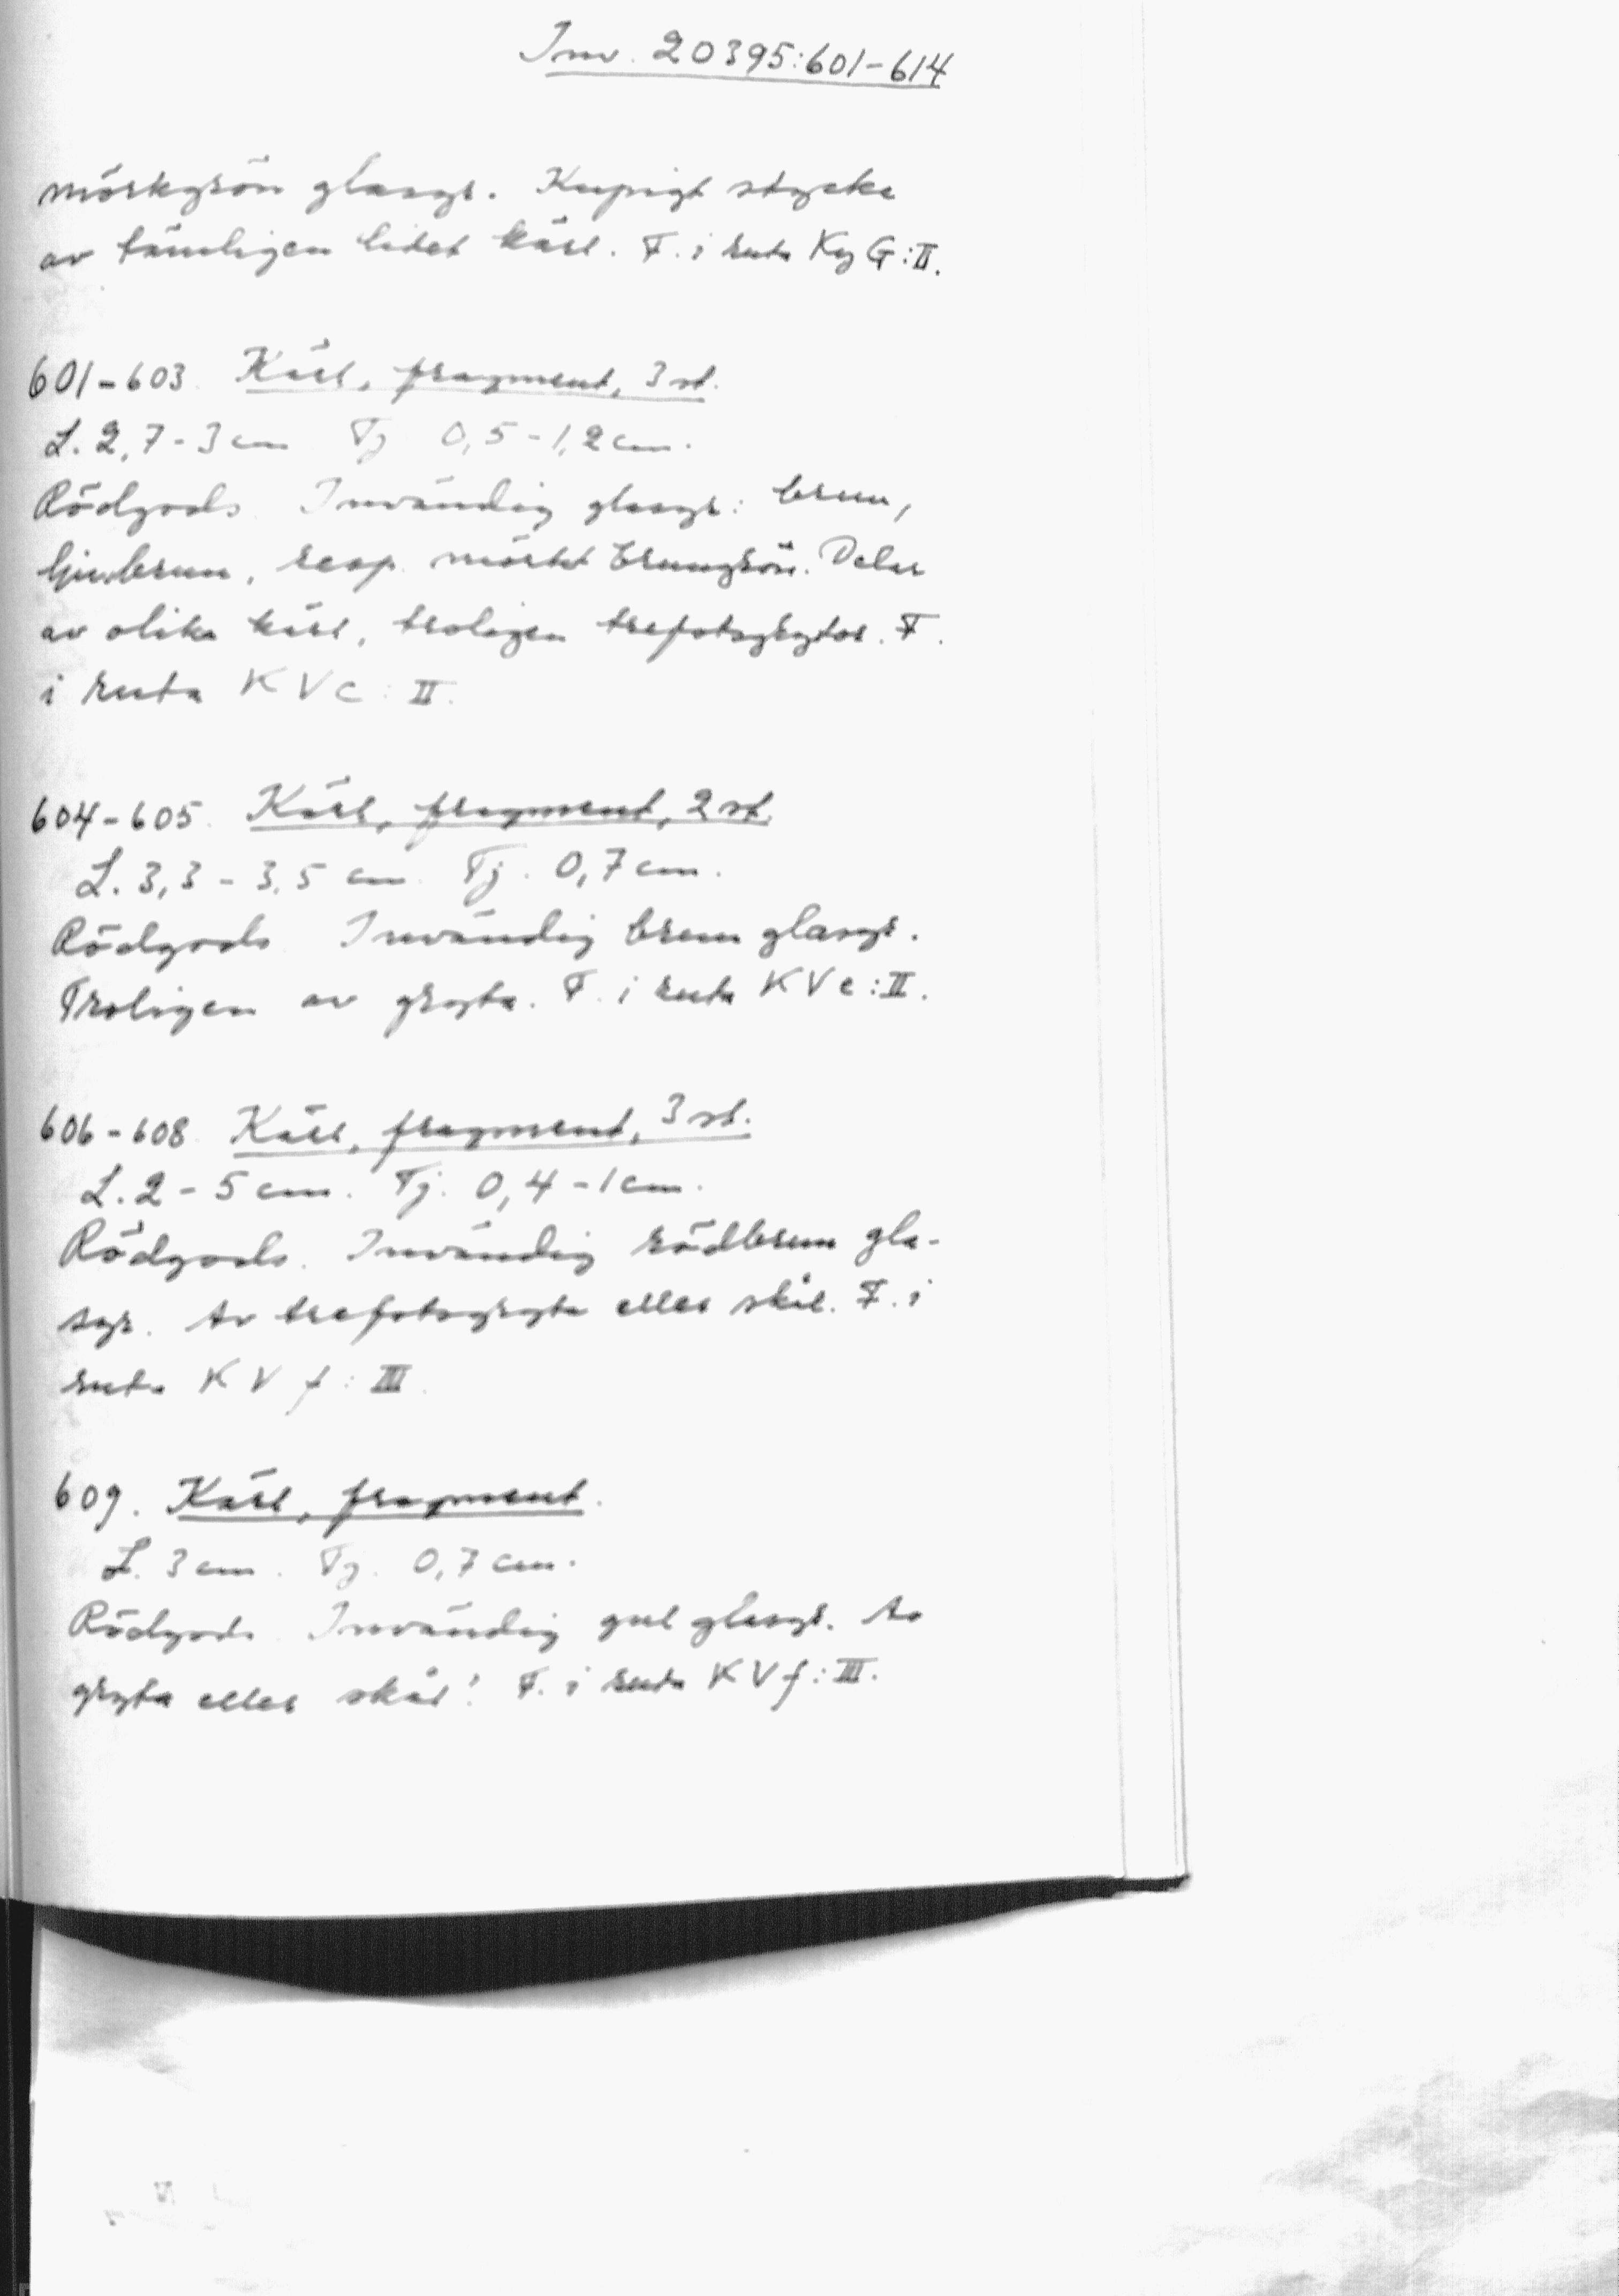 Inv. 20395:601-614
mörkgrön glasyr. Kupigt stycke
av tämligen litet kärl. F. i ruta Ky G:II.
601-603. Kärl, fragment, 3 st.
L. 2,7-3 cm Tj 0,5-1,2 cm.
Rödgods Invändig glasyr: brun,
ljusbrun, resp. mörkt brungrön. Delar
av olika kärl, troligen trefotsgrytor. F.
i ruta KVc:II.
604-605. Kärl, fragment, 2 st.
L. 3,3-3,5 cm. Tj. 0,7 cm.
Rödgods Invändig brun glasyr.
Troligen av gryta. F. i ruta KVe:II.
606-608 Kärl, fragment, 3 st.
L. 2-5 cm. Tj. 0,4-1 cm.
Rödgods. Invändig rödbrun gla-
syr. Av trefotsgryta eller skål. F. i
ruta KVf:III.
609. Kärl, fragment.
L. 3 cm. Tj. 0,7 cm.
Rödgods Invändig gul glasyr. Av
gryta eller skål. F. i ruta KVf:III.